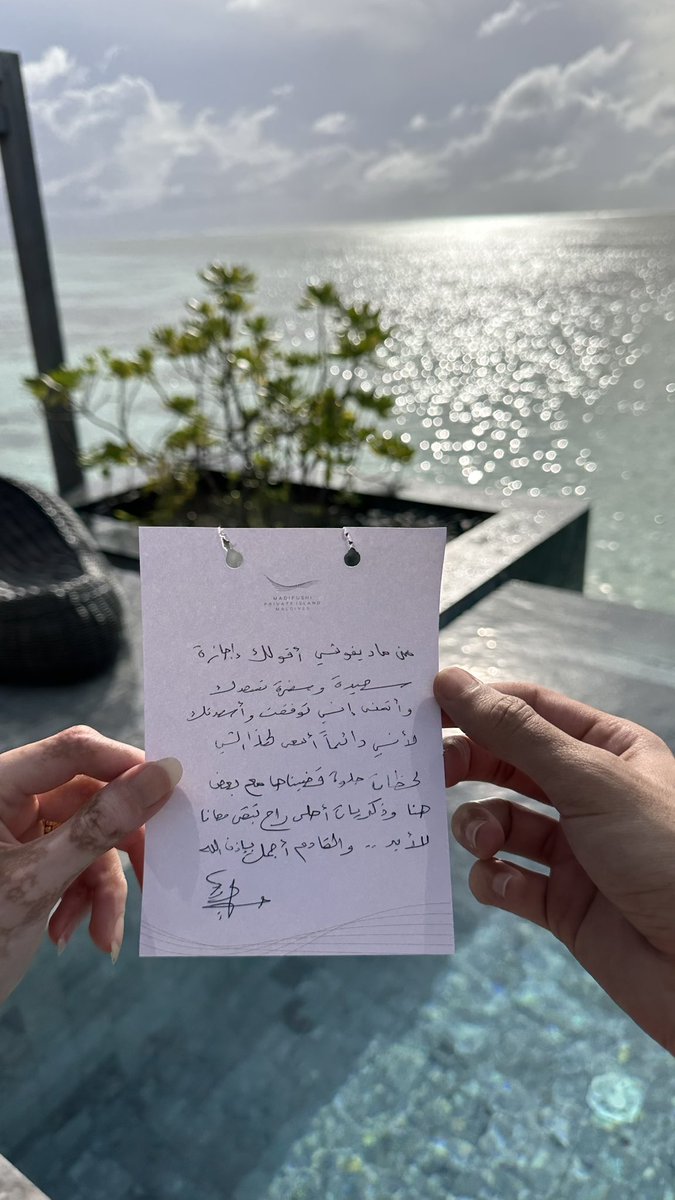 MADIFUSHI
PRIVATE ISLAND
MALDIVES
ما يفوتني أقولك إجازة
سعيدة وسفرة تسعدك
وأتمنى إنني توفقت وأسعدتك
لأنني دائماً أسعى لهذا الشي
لحظات حلوة قضيناها مع بعض
هنا وذكريات أحلى راح تبقى معانا
للأبد .. والقادم أجمل بإذن الله